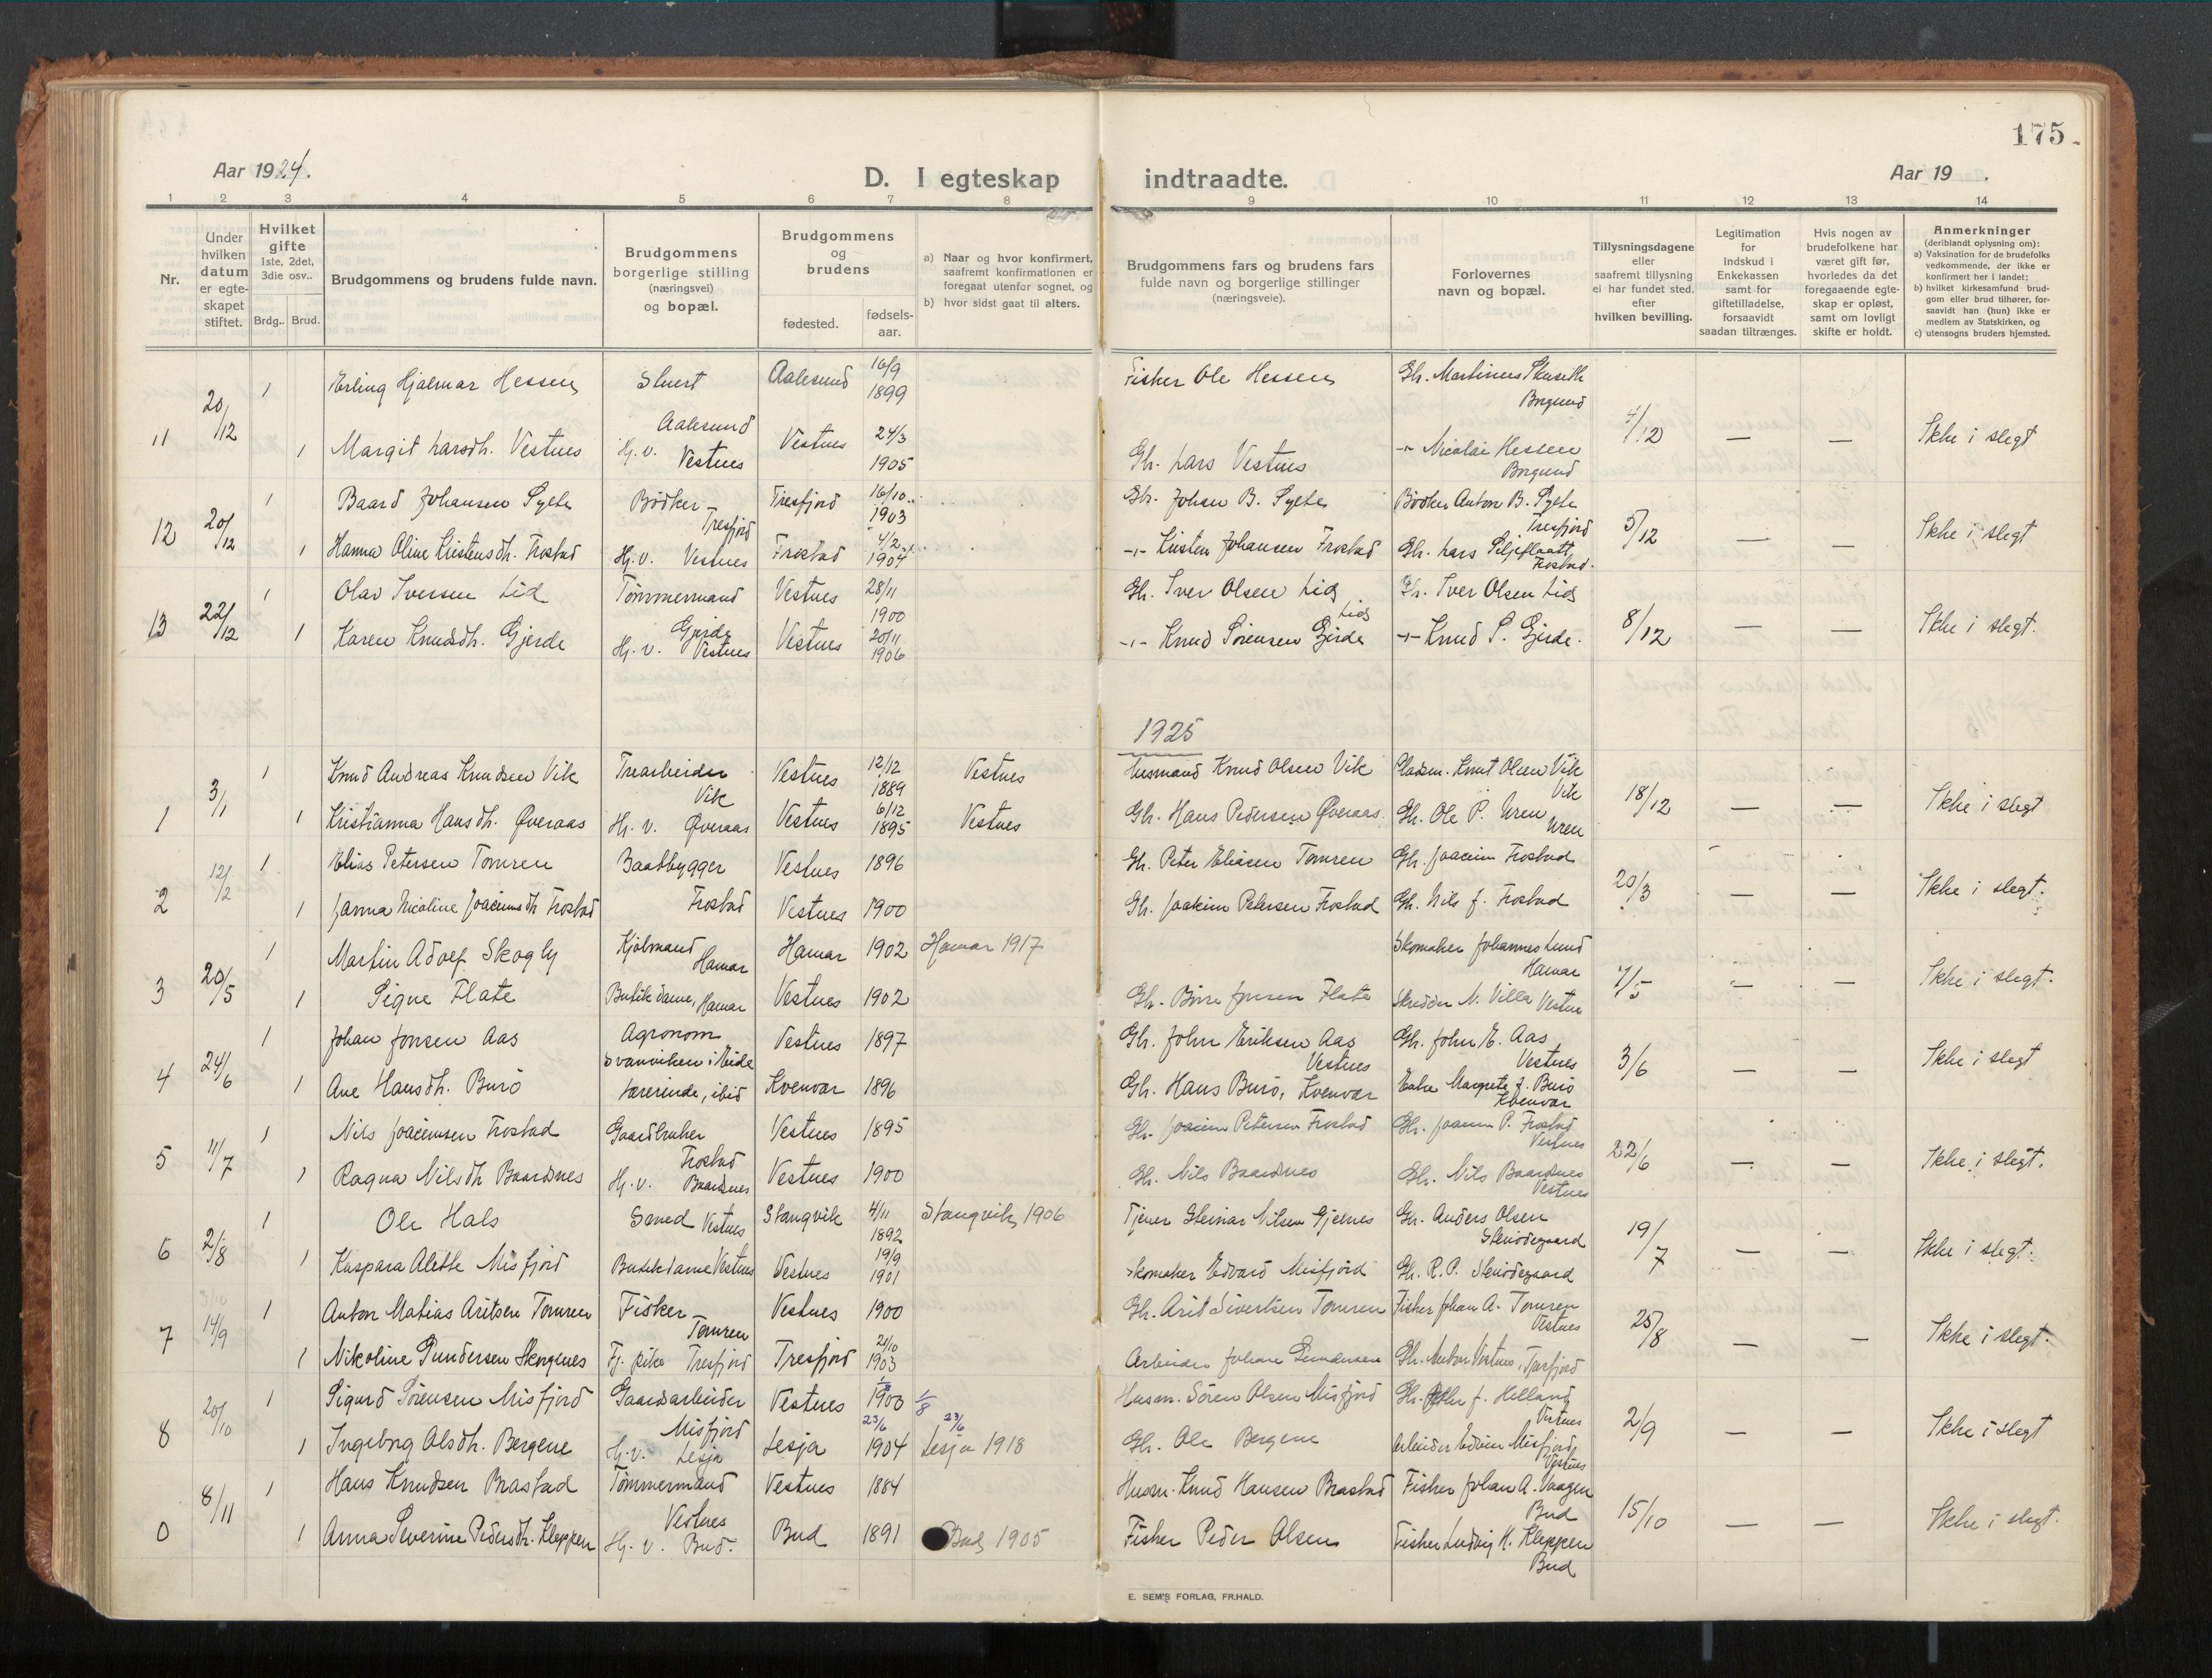 175.
Aar 1924.
D. I egteskap indtraadte.
Aar 19 .
1 2 3 4 5 6 7 8 9 10 11 12 13 14
Nr.
Under hvilken datum er egteskapet stiftet.
Hvilket gifte 1ste, 2det, 3die osv..
Brdg.. Brud.
Brudgommens og brudens fulde navn.
Brudgommens borgerlige stilling (næringsvei) og bopæl.
Brudgommens og brudens
fødested.
fødsels-aar.
a) Naar og hvor konfirmert, saafremt konfirmationen er foregaat utenfor sognet, og
b) hvor sidst gaat til alters.
Brudgommens fars og brudens fars fulde navn og borgerlige stillinger (næringsveie).
Forlovernes navn og bopæl.
Tillysningsdagene eller saafremt tillysning ei har fundet sted. efter hvilken bevilling.
Legitimation for indskud i Enkekassen samt for giftetilladelse, forsaavidt saadan tiltrænges.
Hvis nogen av brudefolkene har været gift før, hvorledes da det foregaaende egteskap er opløst, samt om lovligt skifte er holdt.
Anmerkninger (deriblandt oplysning om):
a) Vaksination for de brudefolks vedkommende, der ikke er konfirmert her i landet;
b) hvilket kirkesamfund brudgom eller brud tilhører, forsaavidt han (hun) ikke er medlem av Statskirken, og
c) utensogns bruders hjemsted.
11 20/12 1 Erling Hjalmar Hessen Stuert Aalesund Aalesund 16/9 1899 Fisker Ole Hessen Gbr. Martinus Skuseth Borgund 4/12 — — Ikke i slegt
1 Margit Larsdh. Vestnes Hj. v. Vestnes Vestnes 24/3 1905 Gbr. Lars Vestnes -"- Nicolai Hessen Borgund
12 20/12 1 Baard Johansen Sylte Bødker Tresfjord Tresfjord 16/10 1903 Gbr. Johan B. Sylte Bødker Anton B. Sylte Tresfjord 5/12 — — Ikke i slegt
1 Hanna Oline Kristensdh. Frostad Hj. v. Vestnes Frostad 4/2 1904 -"- Kristen Johansen Frostad Gbr. Lars Siljeflaatt Frostad.
13 22/12 1 Olav Iversen Lid Tømmermand Gjerde Vestnes 28/11 1900 Gbr. Iver Olsen Lid Lid Gbr. Iver Olsen Lid 8/12 — — Ikke i slegt.
1 Karen Knudsdh. Gjerde Hj. v. Vestnes Vestnes 20/11 1906 -"- Knud Sørensen Gjerde -"- Knud S. Gjerde.
1925
1 3/1 1 Knud Andreas Knudsen Vik Træarbeider Vik Vestnes 12/12 1889 Vestnes Husmand Knud Olsen Vik Pladsm. Knut Olsen Vik Vik 18/12 — — Ikke i slegt
1 Kristianna Hansdh. Øveraas Hj. v. Øveraas Vestnes 6/12 1895 Vestnes Gbr. Hans Pedersen Øveraas Gbr. Ole P. Uren Uren
2 12/2 1 Elias Petersen Tomren Baatbygger Frostad Vestnes 1896 Gbr. Peter Eliasen Tomren Gbr. Joacim Frostad 20/3 — — Ikke i slegt.
1 Janna Nicoline Joacimsdh Frostad Vestnes 1900 Gbr. Joakim Petersen Frostad Gbr. Nils J. Frostad
3 20/5 1 Martin Adolf Skogly Kjølmand Hamar Hamar 1902 Hamar 1917 Skomaker Johannes Lund Hamar 7/5 — — Ikke i slegt.
1 Signe Flate Butikdame, Hamar Vestnes 1902 Gbr. Børre Jonsen Flate Skredder N. Villa Vestnes
4 24/6 1 Johan Jonsen Aas Agronom Svanviken i Eide Vestnes 1897 Gbr. John Eriksen Aas Vestnes Gbr. John E. Aas Vestnes 3/6 — — Ikke i slegt
1 Ane Hansdh. Burø Lærerinde, ibid Kvenvær 1896 Gbr. Hans Burø, Kvenvær Enke Margrete J. Burø Kvenvær
5 11/7 1 Nils Joacimsen Frostad Gaardbruker Frostad Vestnes 1895 Gbr. Joacim Petersen Frostad Gbr. Joacim P. Frostad Vestnes 22/6 — — Ikke i slegt.
1 Ragna Nilsdh Baardsnes Hj. v. Baardsnes Vestnes 1900 Gbr. Nils Baardsnes Gbr. Nils Baardsnes Vestnes
6 2/8 1 Ole Hals Smed Vestnes Stangvik 4/11 1892 Stangvik 1906 Tjener Steinar Nilsen Gjelnes Gbr. Anders Olsen Stenødegaard 19/7 — — Ikke i slegt.
1 Kaspara Alette Misfjord Butikdame Vestnes Vestnes 19/9 1901 Skomaker Edvard Misfjord Gbr. R. P. Stenødegaard
7 14/9 1 Anton Matias Aritsen Tomren Fisker Tomren Vestnes 1900 Gbr. Arit Sivertsen Tomren Fisker Johan A. Tomren Vestnes 25/8 — — Ikke i slegt.
1 Nikoline Gundersen Skorgenes Fj. pike Tresfjord Tresfjord 21/10 1903 Arbeider Johan Gundersen Gbr. Anton Vestnes, Tresfjord
8 20/10 1 Sigurd Sørensen Misfjord Gaardsarbeider Misfjord Vestnes 1/8 1900 1/8 Husm. Søren Olsen Misfjord Gbr. Peter J. Helland Vestnes 2/9 — — Ikke i slegt
1 Ingeborg Olsdh. Bergene Hj. v. Lesja Lesja 23/6 1904 23/6 Lesja 1918 Gbr. Ole Bergene Arbeider Edvin Misfjord Vestnes
0 8/11 1 Hans Knudsen Brastad Tømmermand Vestnes Vestnes 1884 Husm. Knud Hansen Brastad Fisker Johan A. Vaagen Bud 15/10 — — Ikke i slegt.
1 Anna Severine Pedersdh. Kleppen Hj. v. Bud. Bud 1891 Bud 1905 Fisker Peder Olsen Fisker Ludvig H. Kleppen Bud
E. SEM'S FORLAG, FR.HALD.